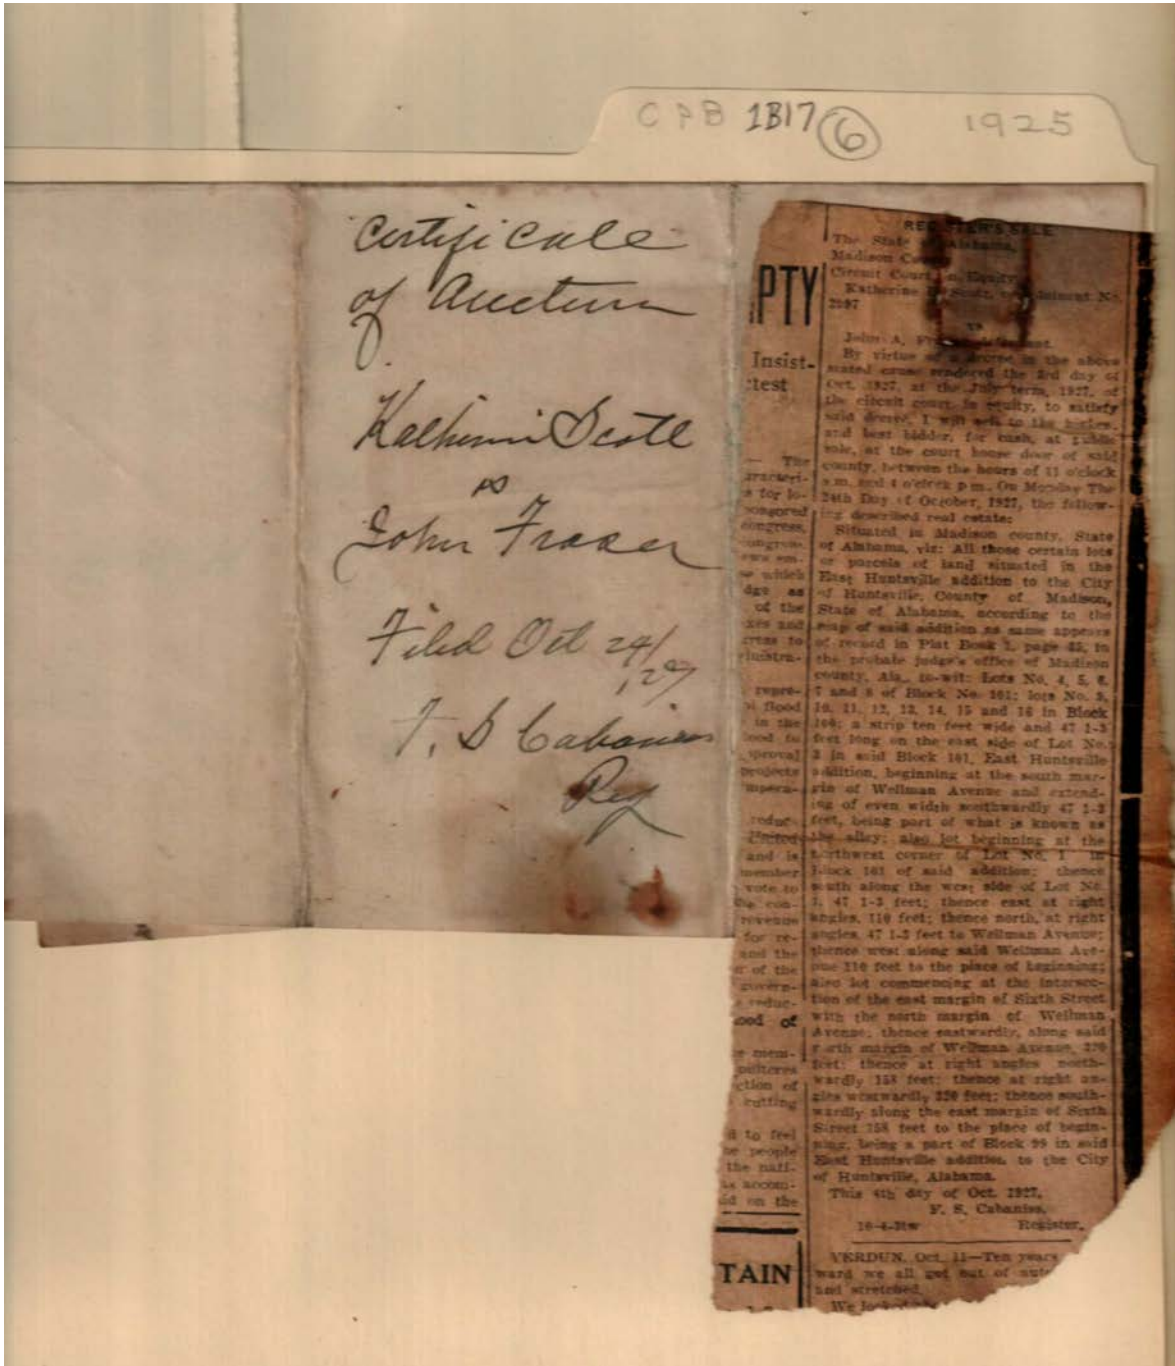 CPB 1B17 6 1925
Certificate
of Auction
Katherine Scott
vs
John Fraser
Filed Oct 24/
,27
F. S Cabaniss
Reg
PTY
Insist-
test
The
aracteri-
s for lo-
ponsored
congress,
congres-
ews em-
se which
dge as
of the
xes and
gress to
ministra-
repre-
flood
in the
ood fu
pproval
projects
impera-
reduc-
United
and is
member
vote to
the con-
revenue
for re-
and the
er of the
govern-
reduc-
ood of
e mem-
ction of
cutting
d to feel
he people
the nati-
is accom-
id on the
TAIN
REGISTER'S SALE
The State of Alabama,
Madison County
Circuit Court, in Equity
Katherine Scott, Complainant No.
2997
vs
John A. Defendant.
By virtue of a decree in the above
stated cause rendered the 3rd day of
Oct. 1927, at the July term, 1927, of
the circuit court, in equity, to satisfy
said decree, I will sell to the highes,
and best bidder, for cash, at public
sale, at the court house door of said
county, between the hours of 11 o'clock
a.m. and 4 o'clock p m. On Monday The
24th Day of October, 1927, the follow-
ing described real estate:
Situated in Madison county, State
of Alabama, viz: All those certain lots
or parcels of land situated in the
East Huntsville addition to the City
of Huntsville, County of Madison,
State of Alabama, according to the
map of said addition as same appears
of record in Plat Book 1, page in
the probate judge's office of Madison
county, Ala., to-wit: Lots No. 4, 5, 6,
7 and 8 of Block No. 101; lots No. 9,
10, 11, 12, 13, 14, 15 and 16 in Block
100; a strip ten feet wide and 47 1-3
feet long on the east side of Lot No.
3 in said Block 101, East Huntsville
addition, beginning at the south mar-
gin of Wellman Avenue and extend-
ing of even width southwardly 47 1-3
feet, being part of what is known as
the alley; also lot beginning at the
northwest corner of Lot No. 1 in
Block 101 of said addition; thence
south along the west side of Lot No.
1, 47 1-3 feet; thence east at right
angles, 110 feet; thence north, at right
angles, 47 1-3 feet to Wellman Avenue;
thence west along said Wellman Ave-
nue 110 feet to the place of beginning;
also lot commencing at the intersec-
tion of the east margin of Sixth Street
with the north margin of Wellman
Avenue; thence eastwardly, along said
north margin of Wellman Avenue, 320
feet; thence at right angles north-
wardly 158 feet; thence at right an-
gles westwardly 320 feet; thence south-
wardly along the east margin of Sixth
Street 158 feet to the place of begin-
ning, being a part of Block 99 in said
East Huntsville addition to the City
of Huntsville, Alabama.
This 4th day of Oct. 1927.
F. S. Cabaniss,
10-4-3tw Register.
VERDUN, Oct. 11—Ten years
ward we all got out of
and stretched.
We looked